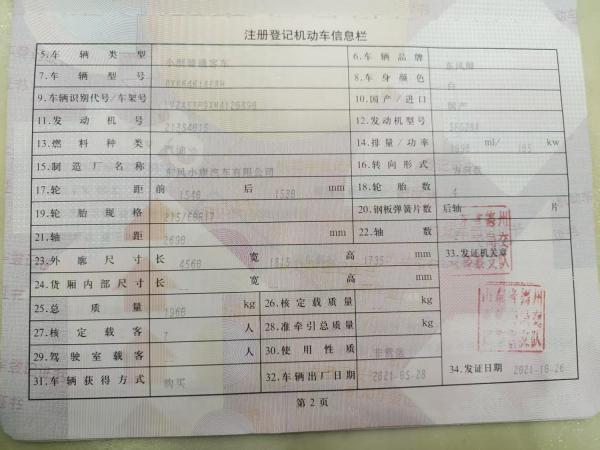 注册登记机动车信息栏
5.车辆类型 小型普通客车 6.车辆品牌
7.车辆型号 8.车身颜色 白
9.车辆识别代号/车架号 10.国产/进口 国产
11.发动机号 12.发动机型号
13.燃料种类 汽油 14.排量/功率 ml/ kw
15.制造厂名称 东风小康汽车有限公司 16.转向形式 方向盘
17.轮距 前 1540 后 1530 mm 18.轮胎数 4
19.轮胎规格 215/60R17 20.钢板弹簧片数 后轴 片
21.轴距 2690 mm 22.轴数
23.外廓尺寸 长 4560 宽 1815 高 1735 mm 33.发证机关章
24.货厢内部尺寸 长 宽 高 mm
25.总质量 1960 kg 26.核定载质量 kg
27.核定载客 7 人 28.准牵引总质量 kg
29.驾驶室载客 人 30.使用性质 非营运
31.车辆获得方式 购买 32.车辆出厂日期 2021-05-28 34.发证日期 2021-10-26
第2页